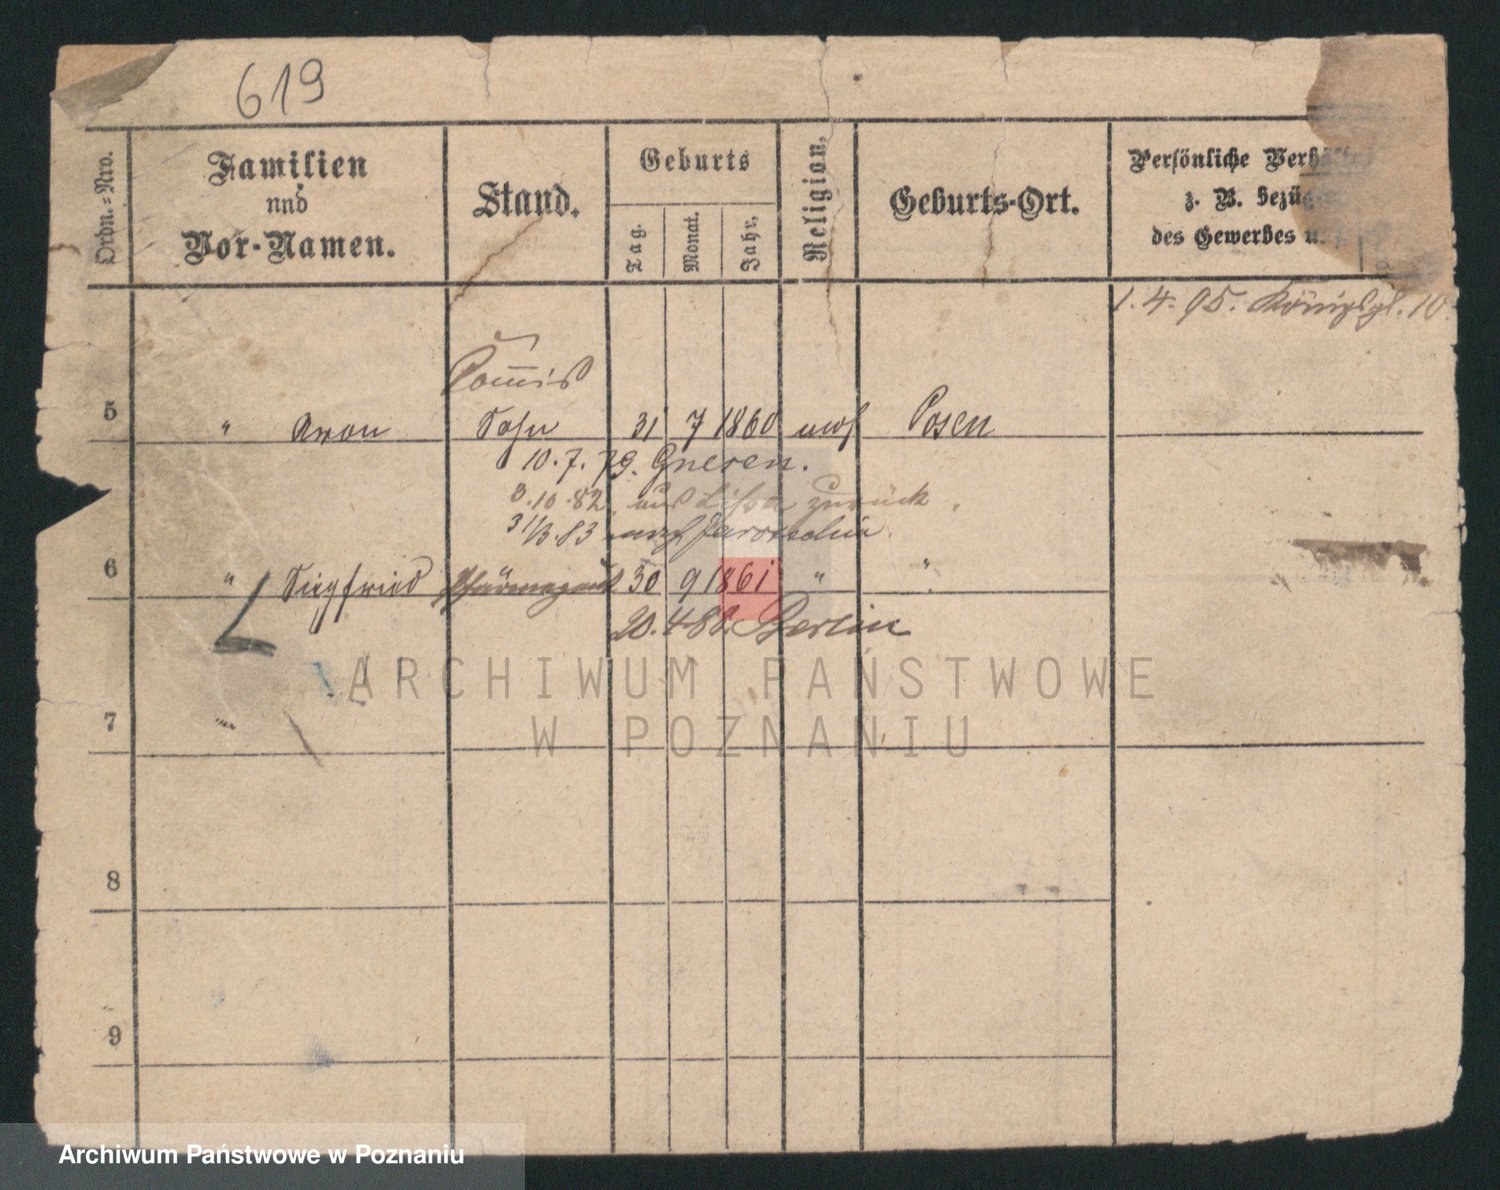 619
Ordn.-Nro.
Familien
und
Vor-Namen.
Stand.
Geburts
Tag.
Monat.
Jahr.
Religion.
Geburts-Ort.
Persönliche
z. B.
des Gewerbes u.
1. 4. 95. Königspl. 10
Commis
5 " Aron Sohn 31 7 1860 mos Posen
10. 7. 79. Gnesen.
3. 10. 82. aus Lissa zurück.
31/3. 83 nach Jarotschin.
6 " Siegfried 30 9 1861 " "
20. 4 80. Berlin
7 "
8
9
ARCHIWUM PAŃSTWOWE
W POZNANIU
Archiwum Państwowe w Poznaniu